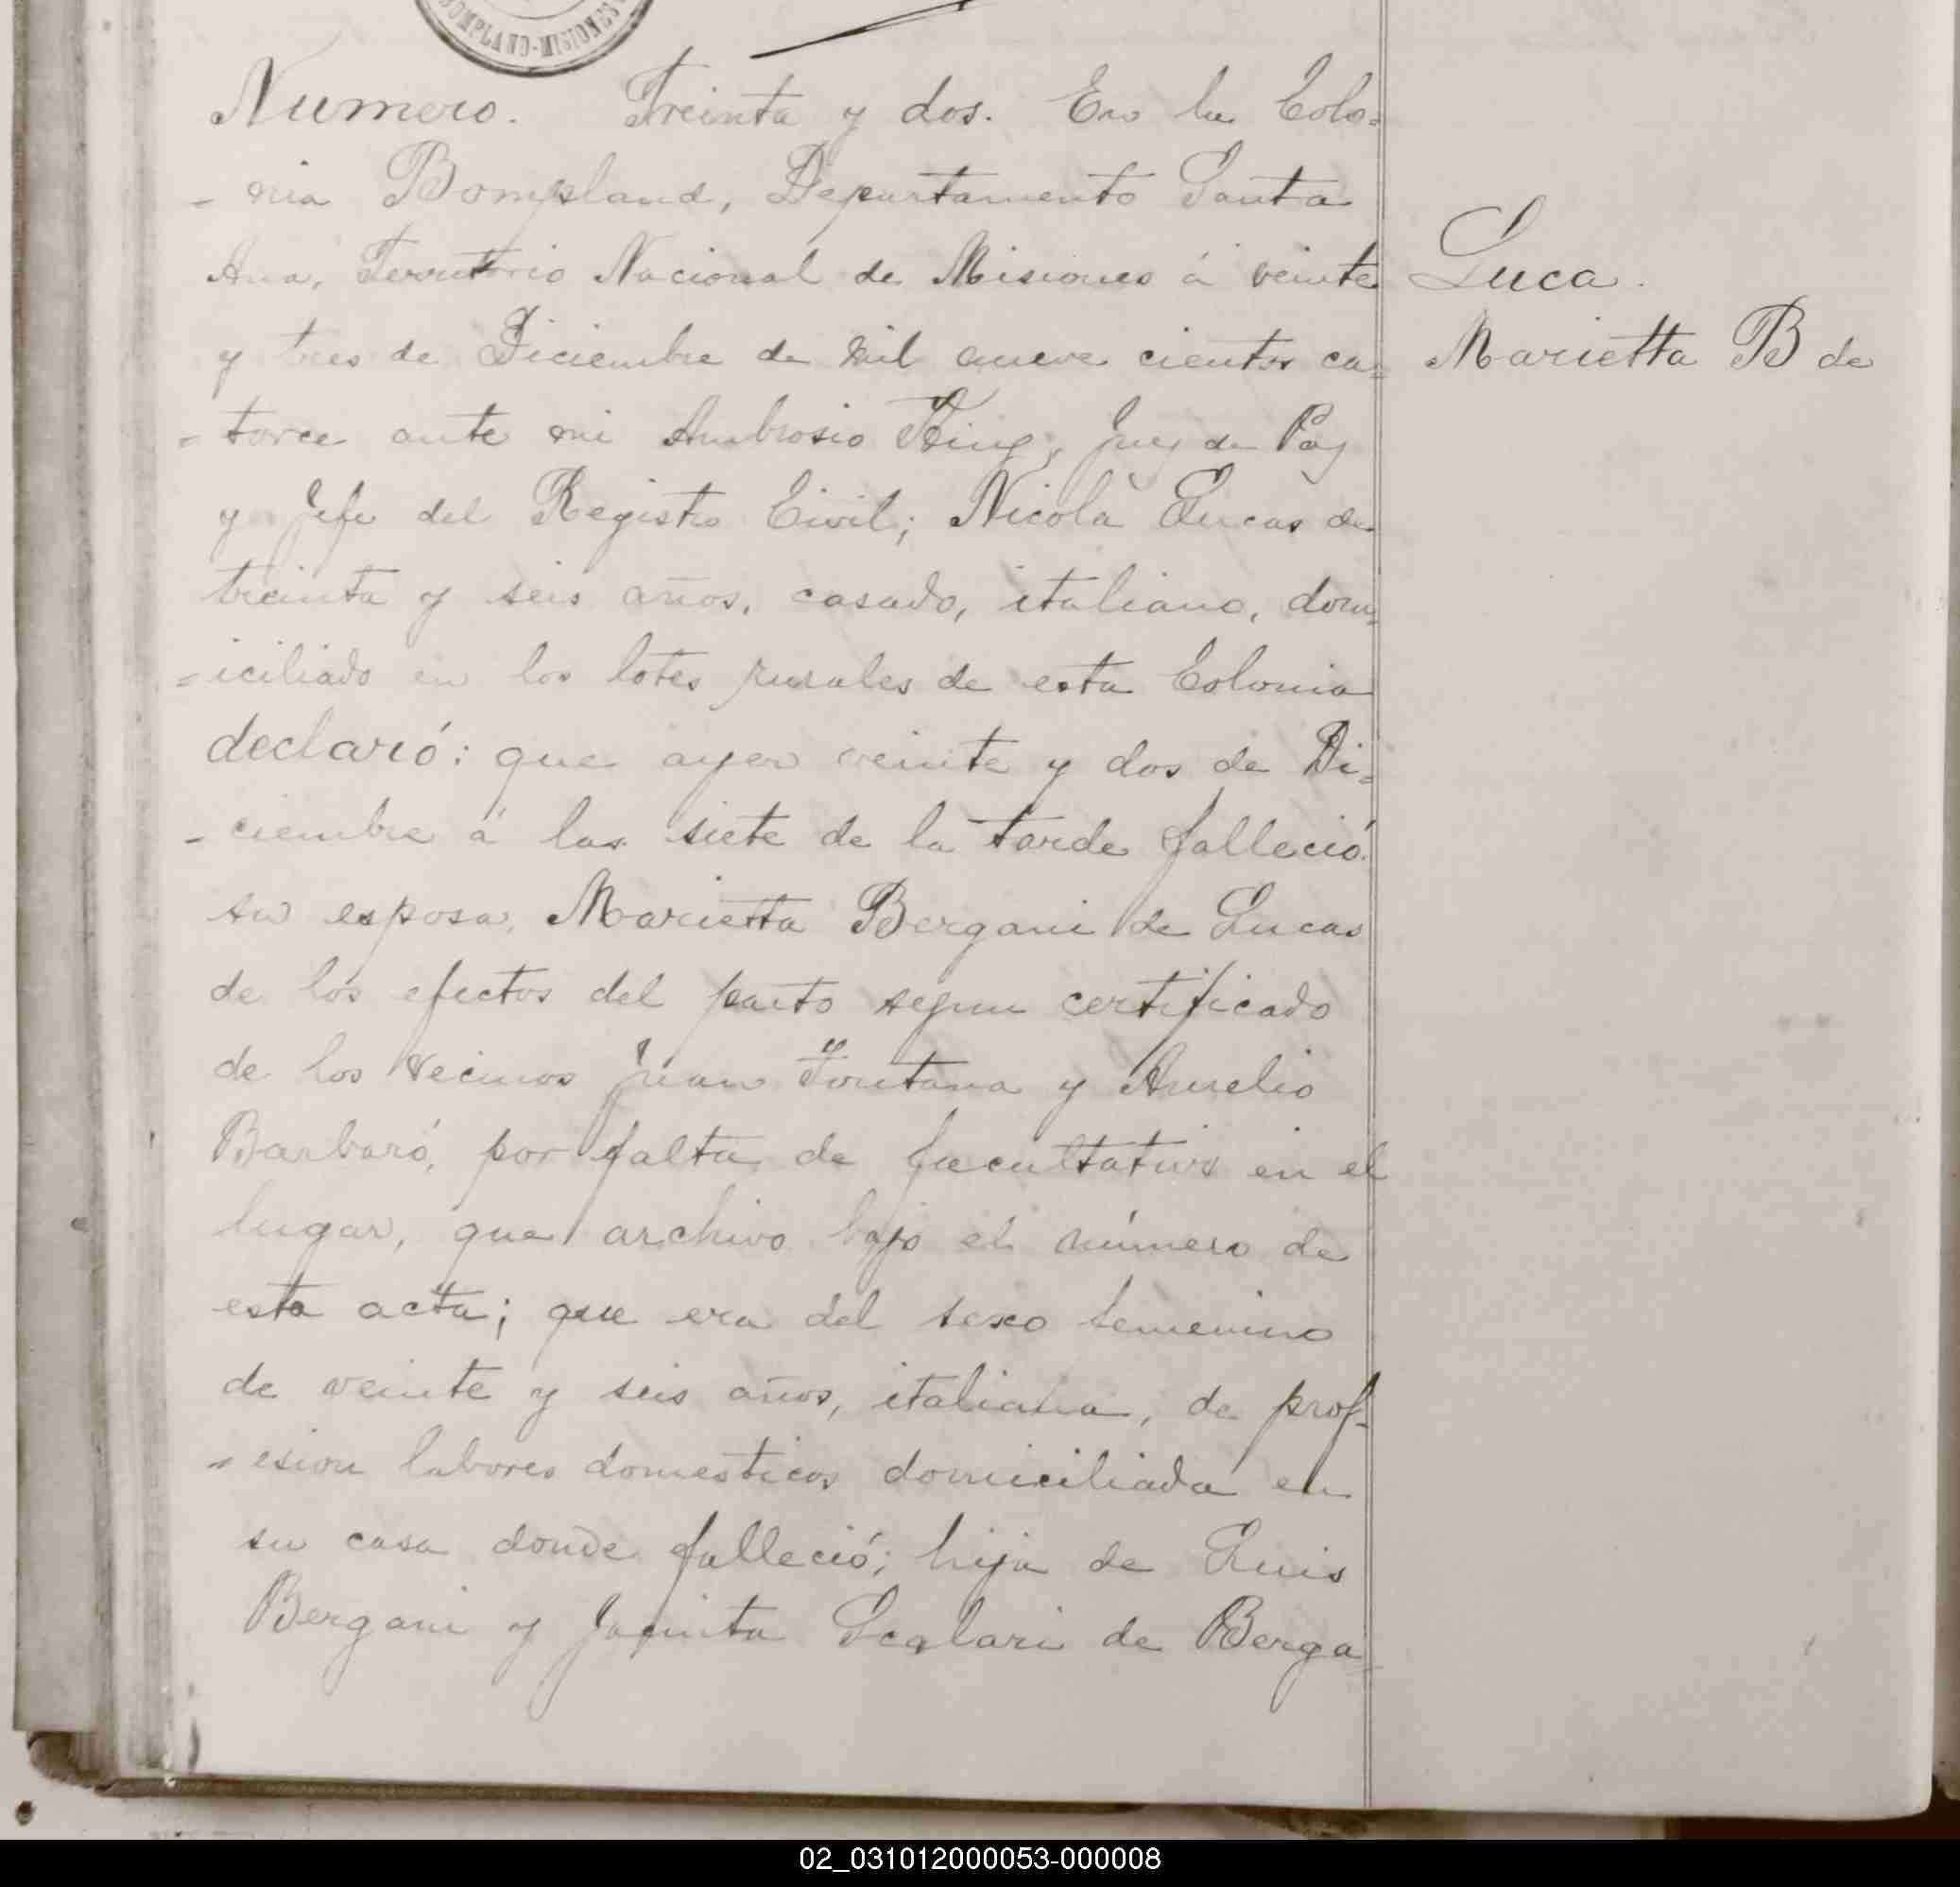 BOMPLAND-MISIONES
Numero. Treinta y dos. En la Colo=
- nia Bompland, Departamento Santa
Ana, Territorio Nacional de Misiones á veinte
y tres de Diciembre de mil nueve cientos ca=
= torce ante mi Ambrosio King, Juez de Paz
y Jefe del Registro Civil; Nicola Lucas de
treinta y seis años, casado, italiano, dom=
= iciliado en los lotes rurales de esta Colonia
declaró: que ayer veinte y dos de Di=
- ciembre á las siete de la tarde falleció
su esposa, Marietta Bergani de Lucas
de los efectos del parto segun certificado
de los vecinos Juan Fontana y Aurelio
Barbaró, por falta de facultativo en el
lugar, que archivo bajo el número de
esta acta; que era del sexo femenino
de veinte y seis años, italiana, de prof-
= esion labores domesticos domiciliada en
su casa donde falleció; hija de Luis
Bergani y Jacinta Scalari de Berga
Luca.
Marietta B de
02_031012000053-000008